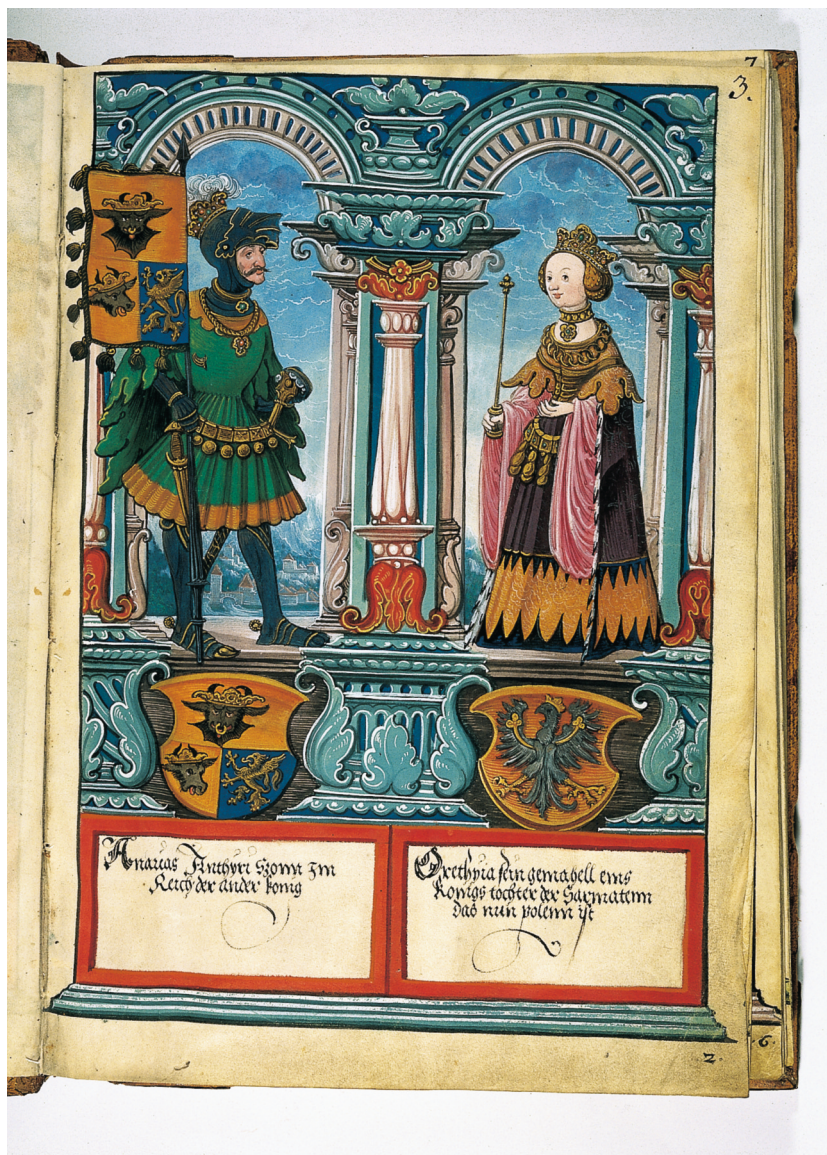 7
3.
Anauas Anthyri Szonn Jm
Reich der ander konig
Orethyia sein gemahell eins
Konigs tochter der Sarmatenn
das nun polenn ist
6.
2.